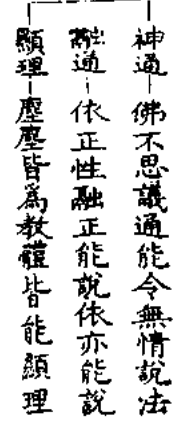 神通—佛不思議通能令無情說法
融通—依正性融正能說依亦能說
顯理—塵塵皆為教體皆能顯理